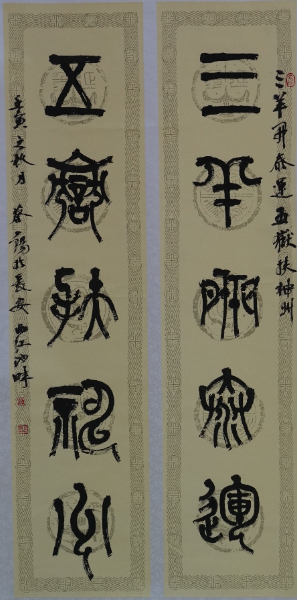 三羊開泰運
五嶽扶神州
三羊开泰运五嶽扶神州
壬寅之秋月蔡陽於長安曲江池畔